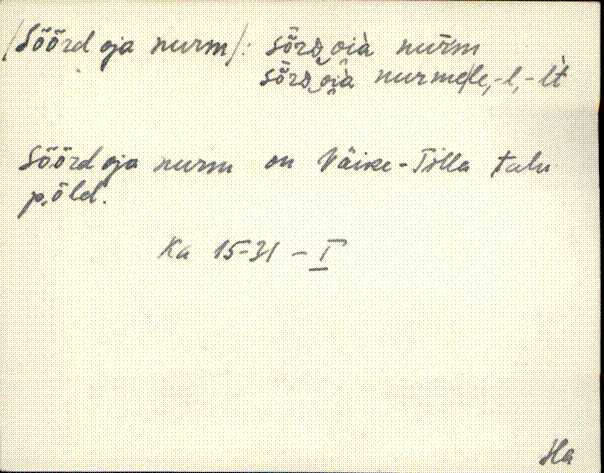 /Sõõrd oja nurm/: sõrᴅ oi̯à nuŕm
sõrᴅ oi̯à nurmele, -l, -lt
Sõõrd oja nurm on Väike-Tilla talu
põld.
Ka 15-31 - I
Ha